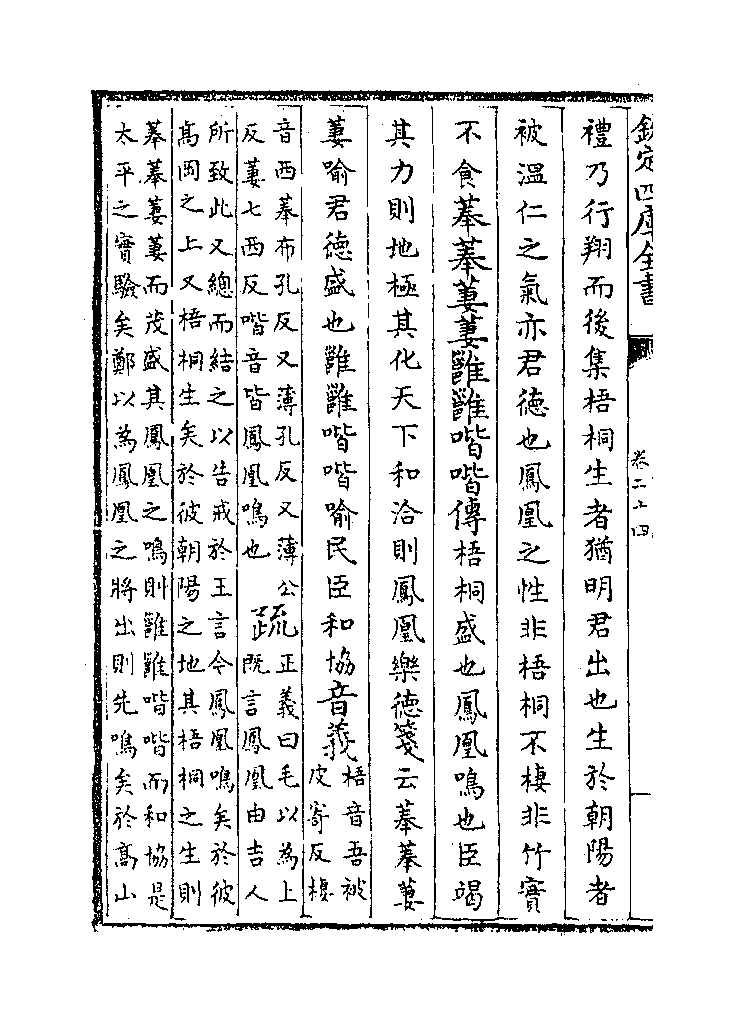 欽定四庫全書
卷二十四
禮乃行翔而後集梧桐生者猶明君出也生於朝陽者
被溫仁之氣亦君德也鳳凰之性非梧桐不棲非竹實
不食菶菶萋萋雝雝喈喈傳梧桐盛也鳳凰鳴也臣竭
其力則地極其化天下和洽則鳳凰樂德箋云菶菶萋
萋喻君德盛也雝雝喈喈喻民臣和協音義梧音吾被
皮寄反棲
音西菶布孔反又薄孔反又薄公
反萋七西反喈音皆鳳凰鳴也
疏正義曰毛以為上
既言鳳凰由吉人
所致此又總而結之以告戒於王言今鳳凰鳴矣於彼
高岡之上又梧桐生矣於彼朝陽之地其梧桐之生則
菶菶萋萋而茂盛其鳳凰之鳴則雝雝喈喈而和協是
太平之實驗矣鄭以為鳳凰之將出則先鳴矣於高山